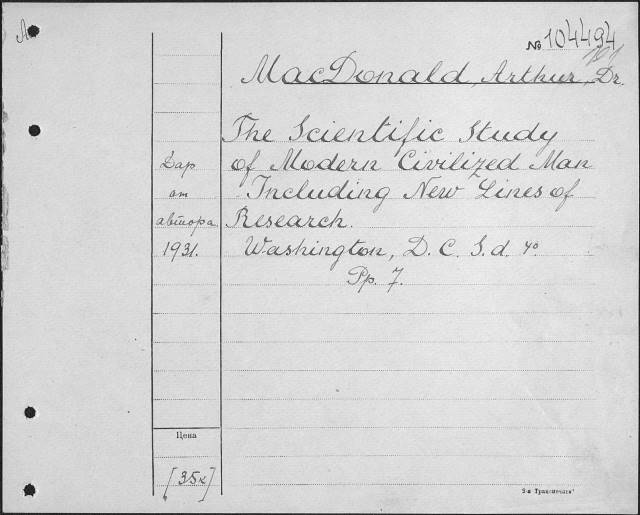 A
№ 104494
MacDonald, Arthur, Dr.
The Scientific Study
of Modern Civilized Man
Including New Lines of
Research.
Washington, D. C. S. d. 4o.
Pp. 7.
Дар
от
автора
1931.
Цена
[35к]